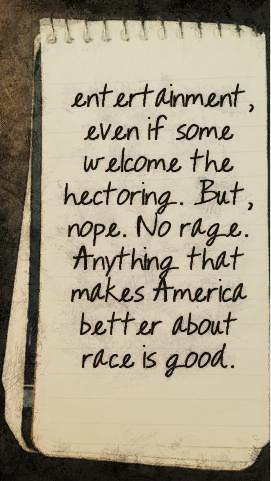 entertainment,
even if some
welcome the
hectoring. But,
nope. No rage.
Anything that
makes America
better about
race is good.